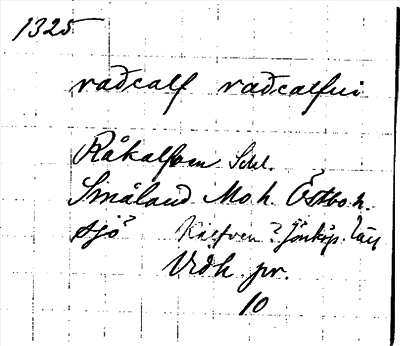 1325
radcalf radcalfui
Råkalfven Sdl.
Småland Mo h. Östbo h.
sjö Kalfven? Jönköp. län
Vidh. pr.
10